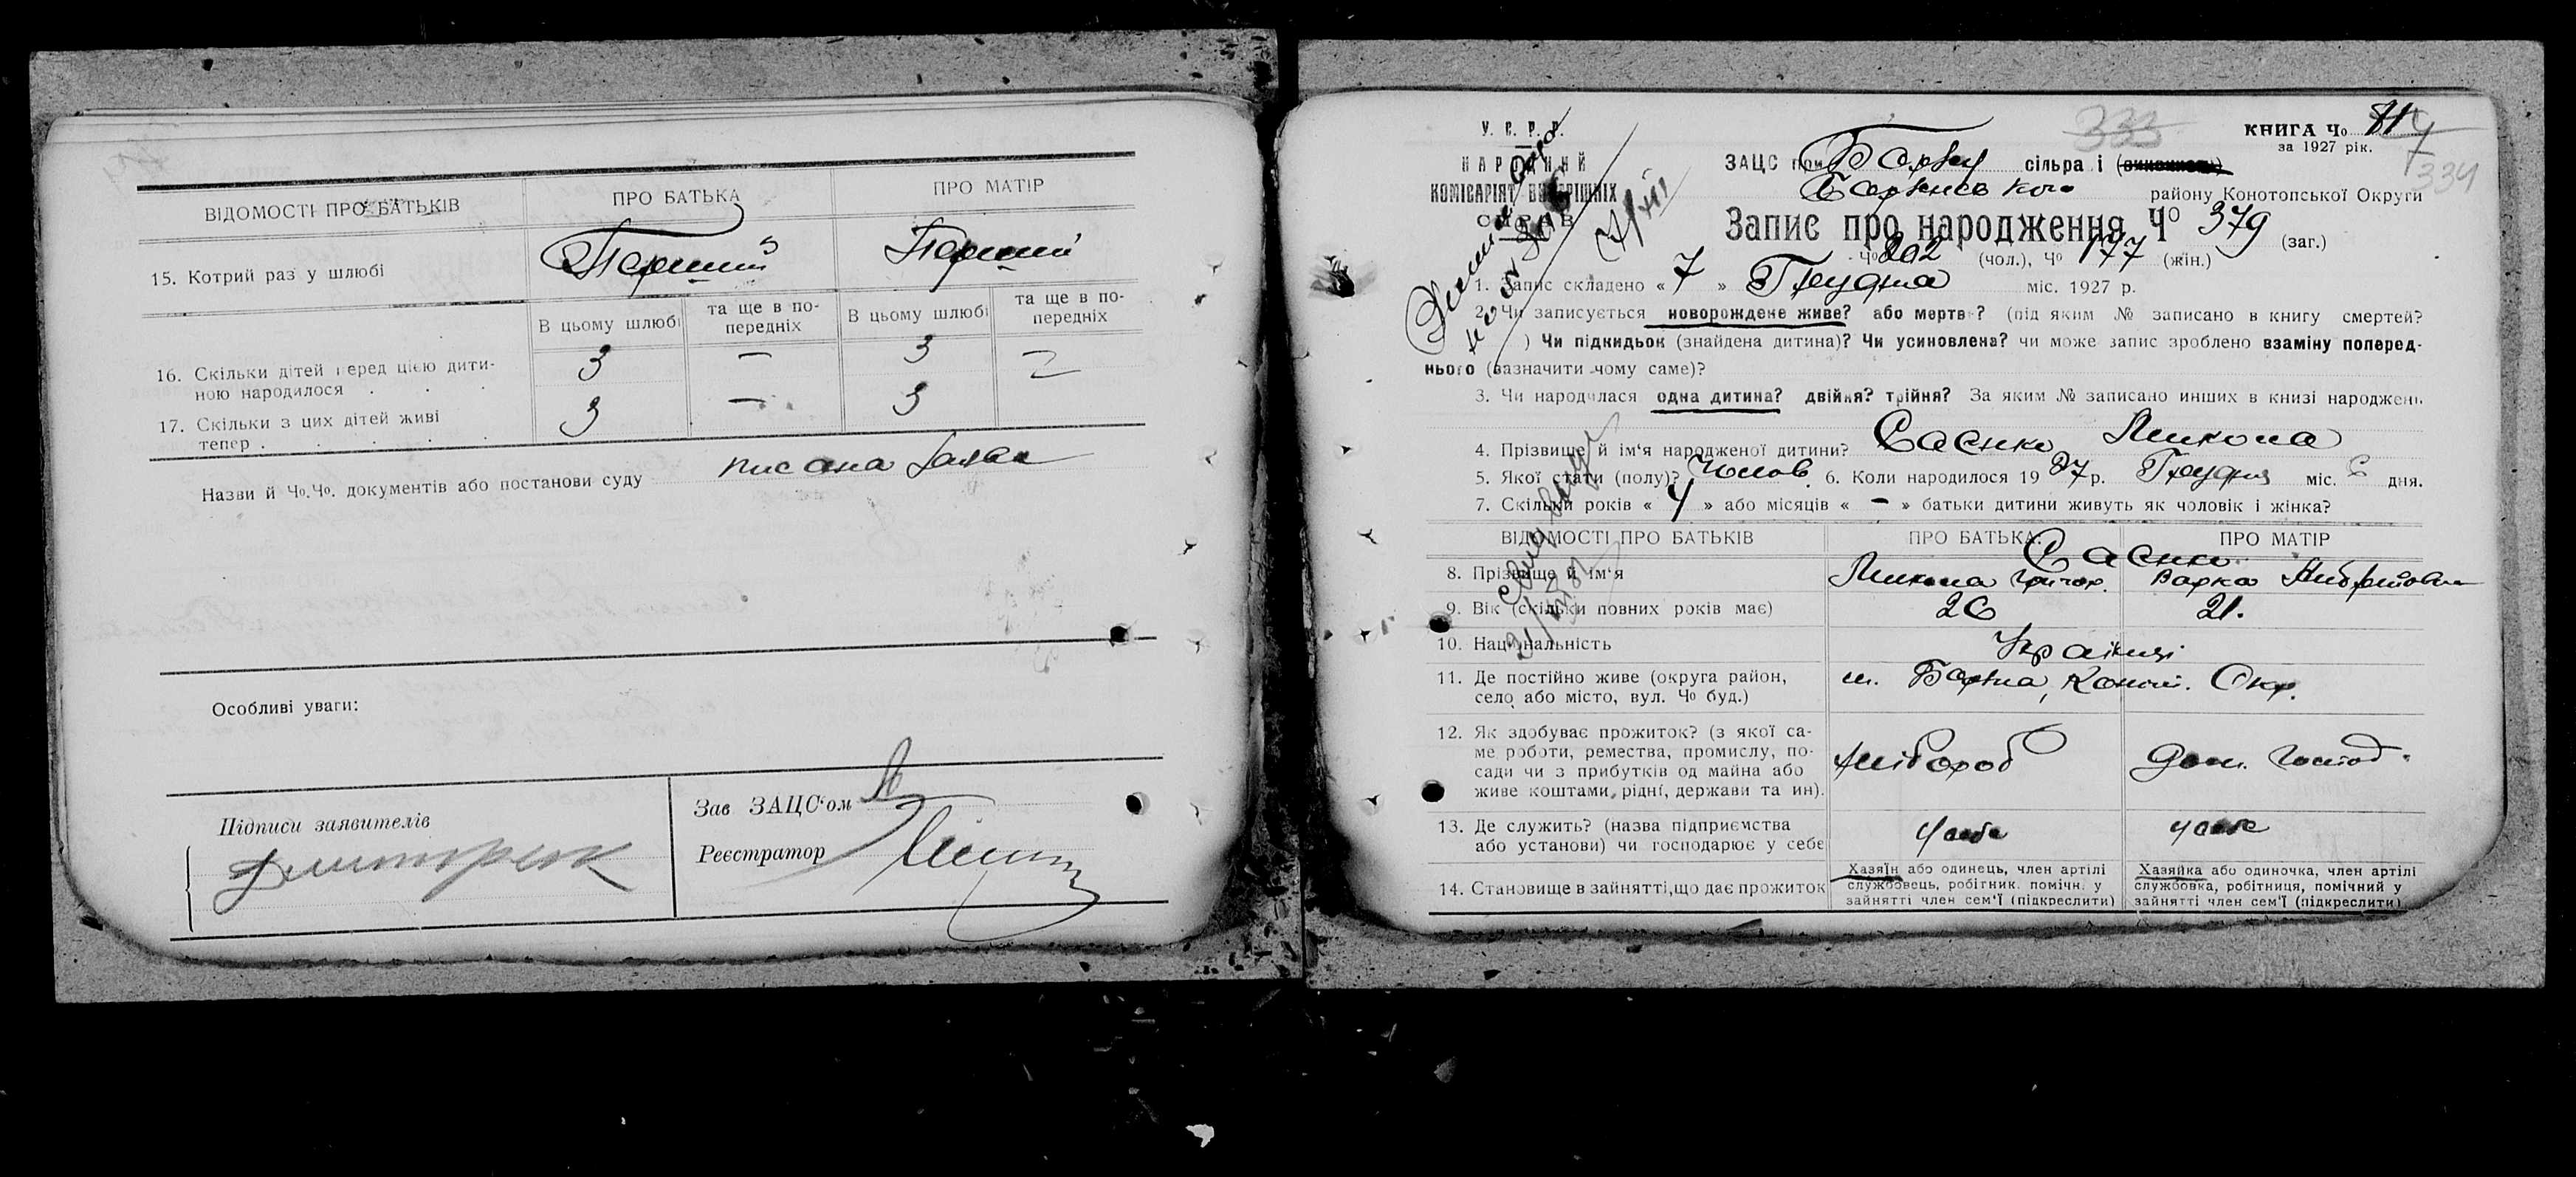 ВІДОМОСТІ ПРО БАТЬКІВ
ПРО БАТЬКА
ПРО МАТІР
15. Котрий раз у шлюбі
Перший
Перший
В цьому шлюбі
та ще в по-
передніх
В цьому шлюбі
та ще в по-
передніх
16. Скільки дітей перед цією дити-
ною народилося . . .
3 — 3 —
17. Скільки з цих дітей живі
тепер . . . . .
3 — 3
Назви й Чо.Чо. документів або постанови суду писана заява
Особливі уваги:
Підписи заявителів
Зав ЗАЦС'ом
Реєстратор
У. С. Р. Р.
НАРОДНИЙ
КОМІСАРІЯТ ВНУТРІШНІХ
СПРАВ
7/XII
333
КНИГА Чо 81
за 1927 рік.
334
ЗАЦС при Борзн сільра і (виконком)
Борзнянського району Конотопської Округи
Запис про народження Чо 379 (заг.)
Чо 202 (чол.), Чо 177 (жін.)
1. Запис складено « 7 » Грудня міс. 1927 р.
2. Чи записується новорождене живе? або мертве? (під яким № записано в книгу смертей?
) Чи підкидьок (знайдена дитина)? Чи усиновлена? чи може запис зроблено взаміну поперед-
нього (зазначити чому саме)?
3. Чи народилася одна дитина? двійня? трійня? За яким № записано инших в книзі народжень
4. Прізвище й ім'я народженої дитини? Саєнко Микола
5. Якої стати (полу)? Чолов. 6. Коли народилося 1927 р. Грудня міс. 6 дня.
7. Скільки років « 4 » або місяців « — » батьки дитини живуть як чоловік і жінка?
ВІДОМОСТІ ПРО БАТЬКІВ
ПРО БАТЬКА:
ПРО МАТІР
Саєнки
8. Прізвище й ім'я
Микола Григор.
Варка
9. Вік (скільки повних років має)
26
21.
10. Національність
Українці
11. Де постійно живе (округа район,
село або місто, вул. Чо буд.)
м. Борзна, Коной. Окр.
12. Як здобуває прожиток? (з якої са-
ме роботи, ремества, промислу, по-
сади чи з прибутків од майна або
живе коштами рідні, держави та ин).
хлібороб
дом. господ.
13. Де служить? (назва підприємства
або установи) чи господарює у себе
у себе
у себе
14. Становище в зайнятті, що дає прожиток
Хазяїн або одинець, член артілі
службовець, робітник, помічн. у
зайнятті член сем'ї (підкреслити)
Хазяйка або одиночка, член артілі
службовка, робітниця, помічний у
зайнятті член сем'ї (підкреслити)